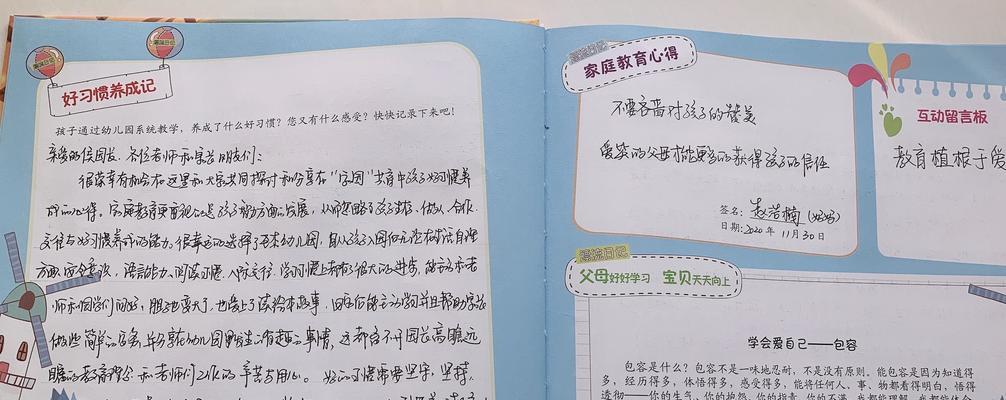 好习惯养成记
孩子通过幼儿园系统教学，养成了什么好习惯？您又有什么感受？快快记录下来吧！
亲爱的任园长、各位老师和家长朋友们：
很荣幸有机会在这里和大家共同探讨和分享在“家园”共育中孩子好习惯养
成的心得。家庭教育更重视的是孩子智力方面的发展，从而忽略了孩子生存、做人、合作、
交往与好习惯养成的能力。很幸运的选择了 幼儿园，自从孩子入园后无论在生活自理
方面、安全意识，语言能力、阅读习惯、人际交往、学习习惯上都有很大的进步，能主动和老
师和同学们问好，胆也变大了，也爱上了读绘本故事，回家后能主动学习并且帮助家长
做些简单的家务，并分享在幼儿园里发生的有趣的事情，这都离不开园长高瞻远
瞩的教育理念和老师们工作的辛苦与用心。好的习惯需要坚守，坚持，
家庭教育心得
不要吝啬对孩子的赞美
爱笑的父母才能更多的获得孩子的信任
签名：赵若楠（妈妈）
日期：2020年11月30日
互动留言板
教育植根于爱
父母好好学习 宝贝天天向上
学会爱自己——包容
包容是什么？包容不是一味地忍耐，不是没有原则。能包容是因为知道得
多，经历得多，体悟得多，感受得多，能将任何人、事、物都看得明白，悟得
透彻——你的生气、你的抱怨、你的指责、你的不满，我都能理解，我都能体会